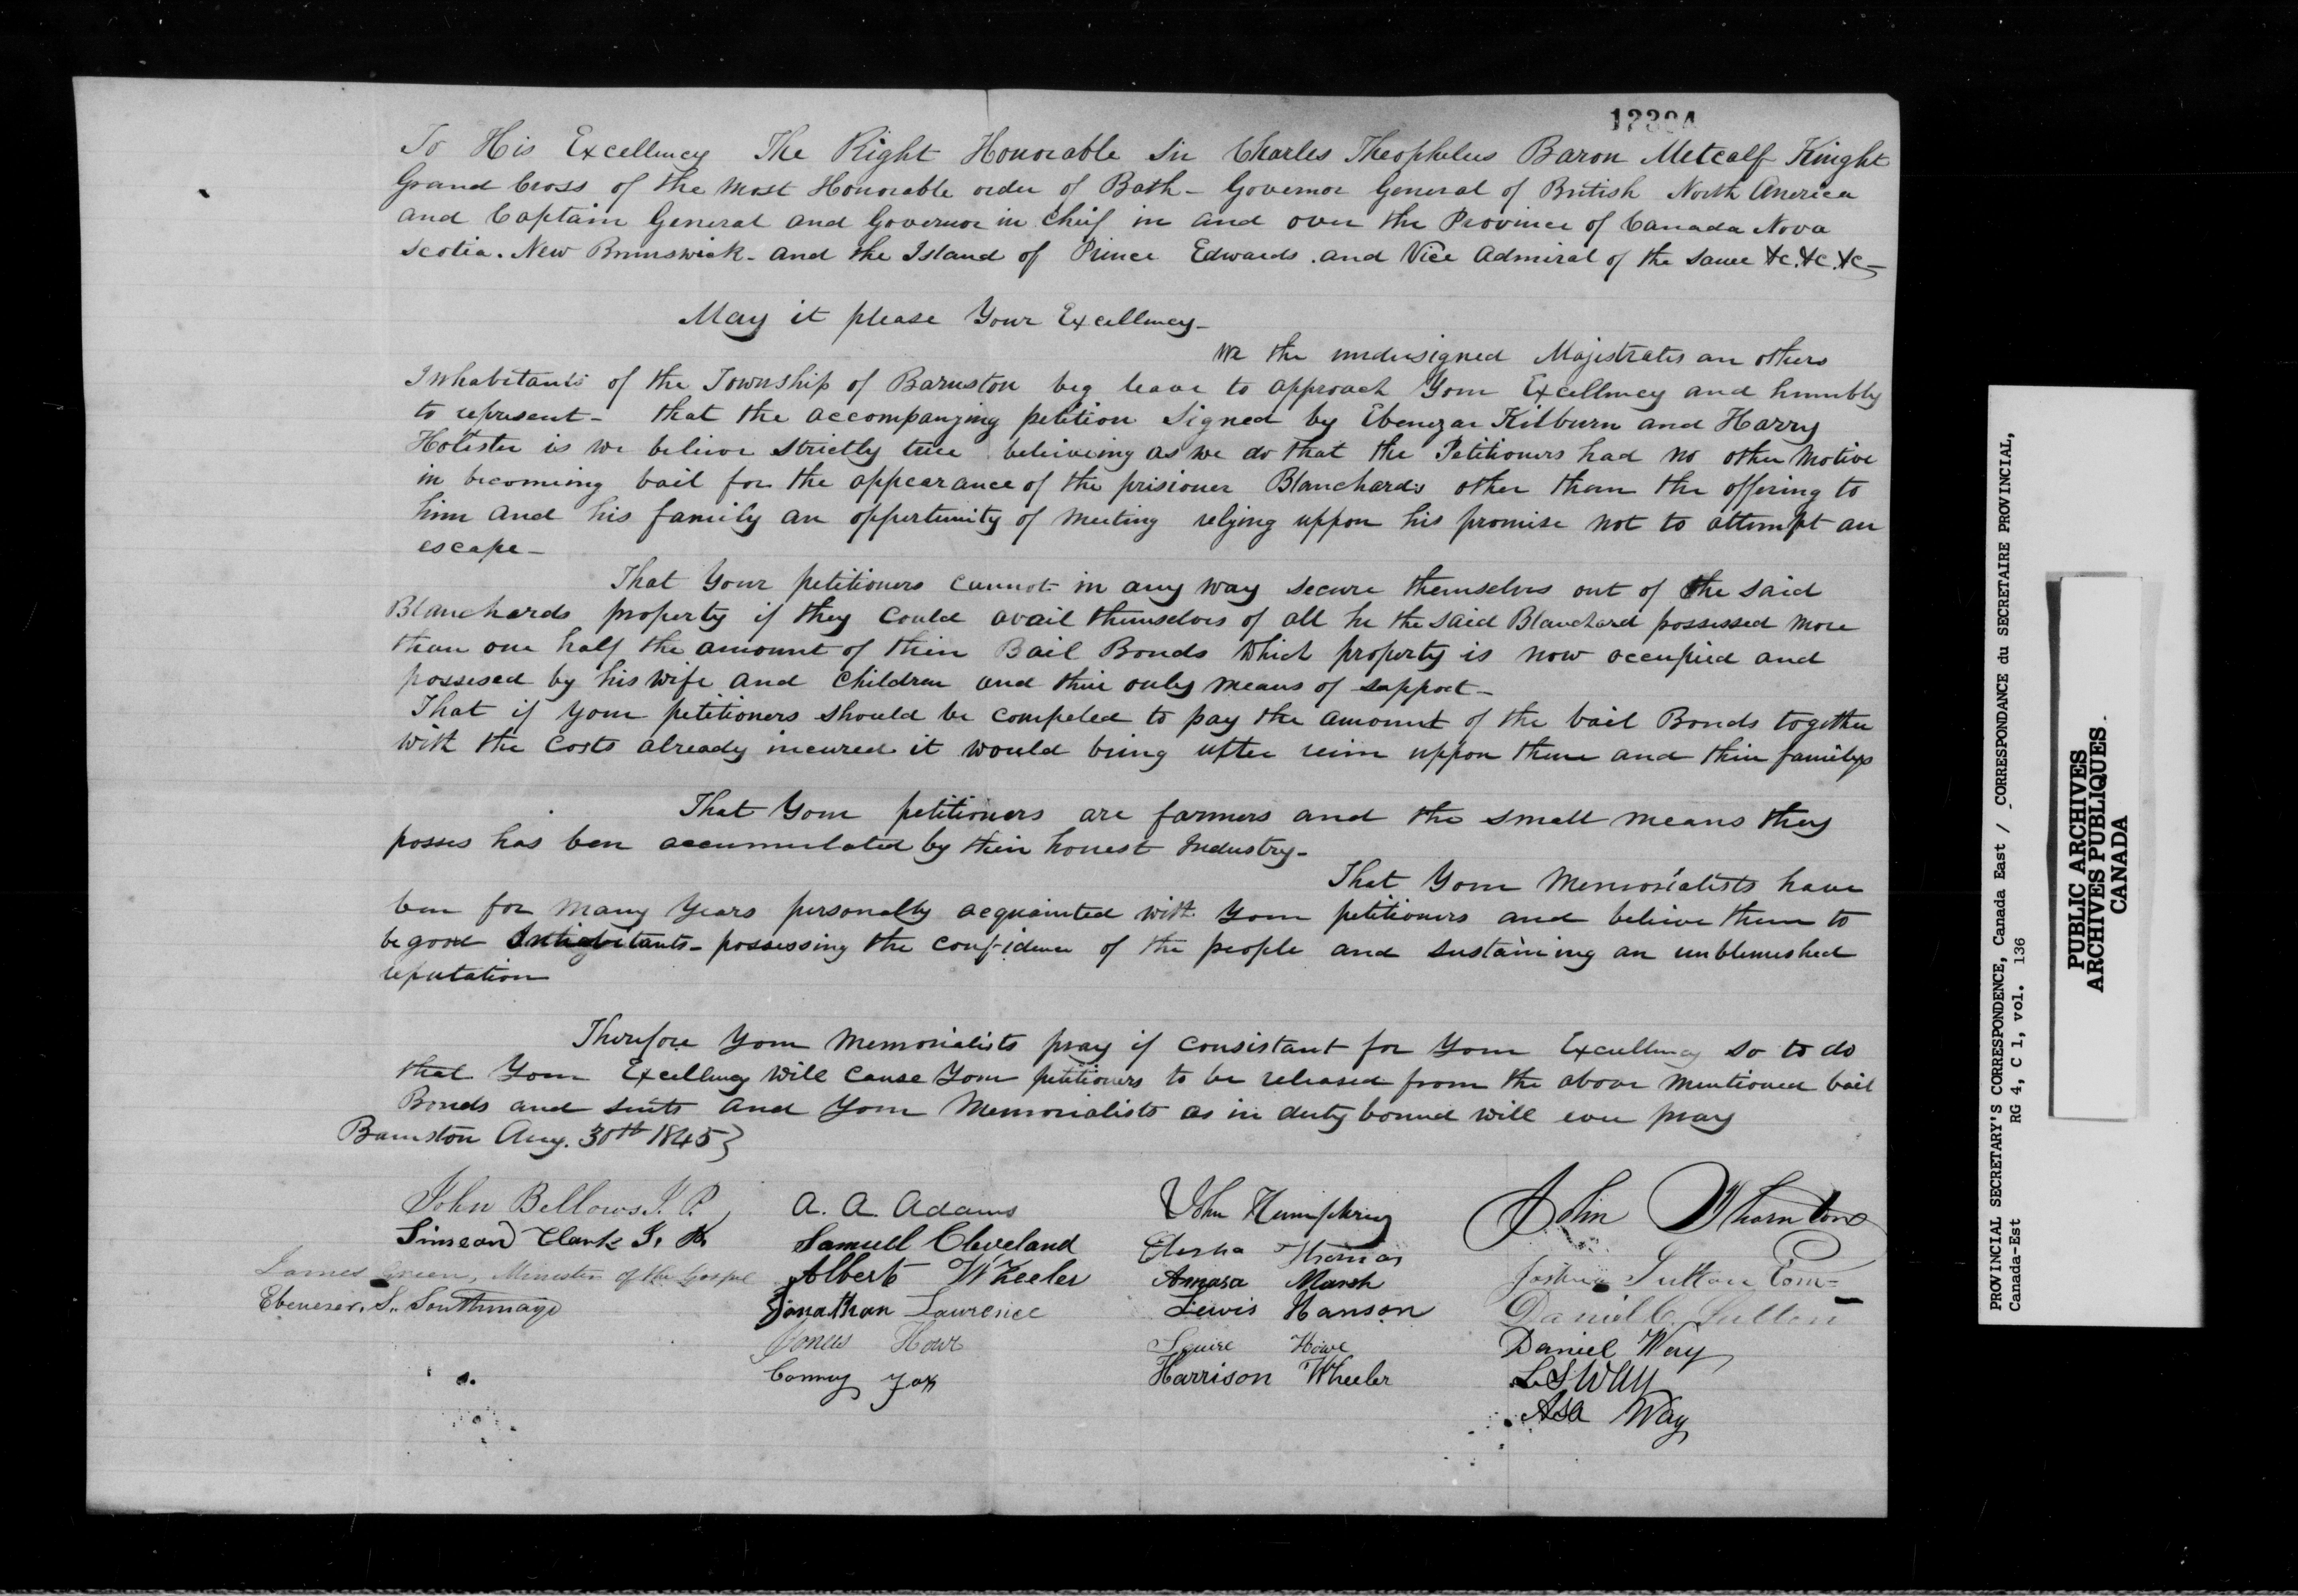 1230A
To His Excellency The Right Honorable Sir Charles Theophelus Baron Metcalf Knight
Grand Cross of the Most Honorable order of Bath - Governor General of British North America
and Captain General and Governor in Chief in and over the Province of Canada Nova
Scotia. New Brunswick - and the Island of Prince Edwards. and Vice Admiral of the same &c. &c. &c -
May it please Your Excellency -
We the undersigned Majestrates an others
Inhabitants of the Township of Barnston beg leave to approach Your Excellency and humbly
to represent - that the accompanying petition signed by Ebenezar Kilburn and Harry
Holister is we believe strictly true believeing as we do that the Petitioners had no other Motive
in becoming bail for the appearance of the prisioner Blanchards other than the offering to
him and his family an oppertunity of meeting relying uppon his promise not to attempt an
escape -
That Your petitioners cannot in any way secure themselves out of the said
Blanchards property if they could avail themselves of all he the said Blanchard possessed more
than one half the amount of their Bail Bonds which property is now occupied and
possesed by his wife and Children and their only means of support -
That if your petitioners should be compeled to pay the amount of the bail Bonds together
with the Costs already incured it would bring utter ruin uppon them and their familys
That Your petitioners are farmers and the small means they
posses has ben accumulated by their honest Industry -
That Your Memorialists have
ben for many Years personally acquainted with Your petitioners and believe them to
be good Inhabitants - possessing the confidence of the people and sustaining an unblemished
reputation
Therefore Your Memorialists pray if consistant for Your Excellency so to do
that Your Excellency will cause Your petitioners to be released from the above mentioned bail
Bonds and suits and Your Memorialists as in duty bound will ever pray
Barnston Aug. 30th 1845 }
John Bellows J. P. A. A. Adams John Humphrey John Thornton
Simeon Clark J. P. Samuel Cleveland Elisha Thomas
James Green, Minister of the Gospel Albert Wheeler Amasa Marsh Joshua Sutton
Ebenezer. S. Southmayd Jonathan Lawrence Lewis Hanson Daniel C. Sutton
Squire Howe Daniel Way
Harrison Wheeler L S Way
Asa Way
PROVINCIAL SECRETARY'S CORRESPONDENCE, Canada East / CORRESPONDANCE du SECRETAIRE PROVINCIAL,
Canada-Est RG 4, C 1, vol. 136
PUBLIC ARCHIVES
ARCHIVES PUBLIQUES
CANADA